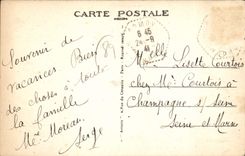 CARTE POSTALE
6 45
24 - 8
41
Souvenir de
vacances Bien
des choses à toute
la famille
Me Moreau
Serge
Melle Lisette Courtois
chez Mr Courtois à
Champagne s/ Seine
Seine et Marne